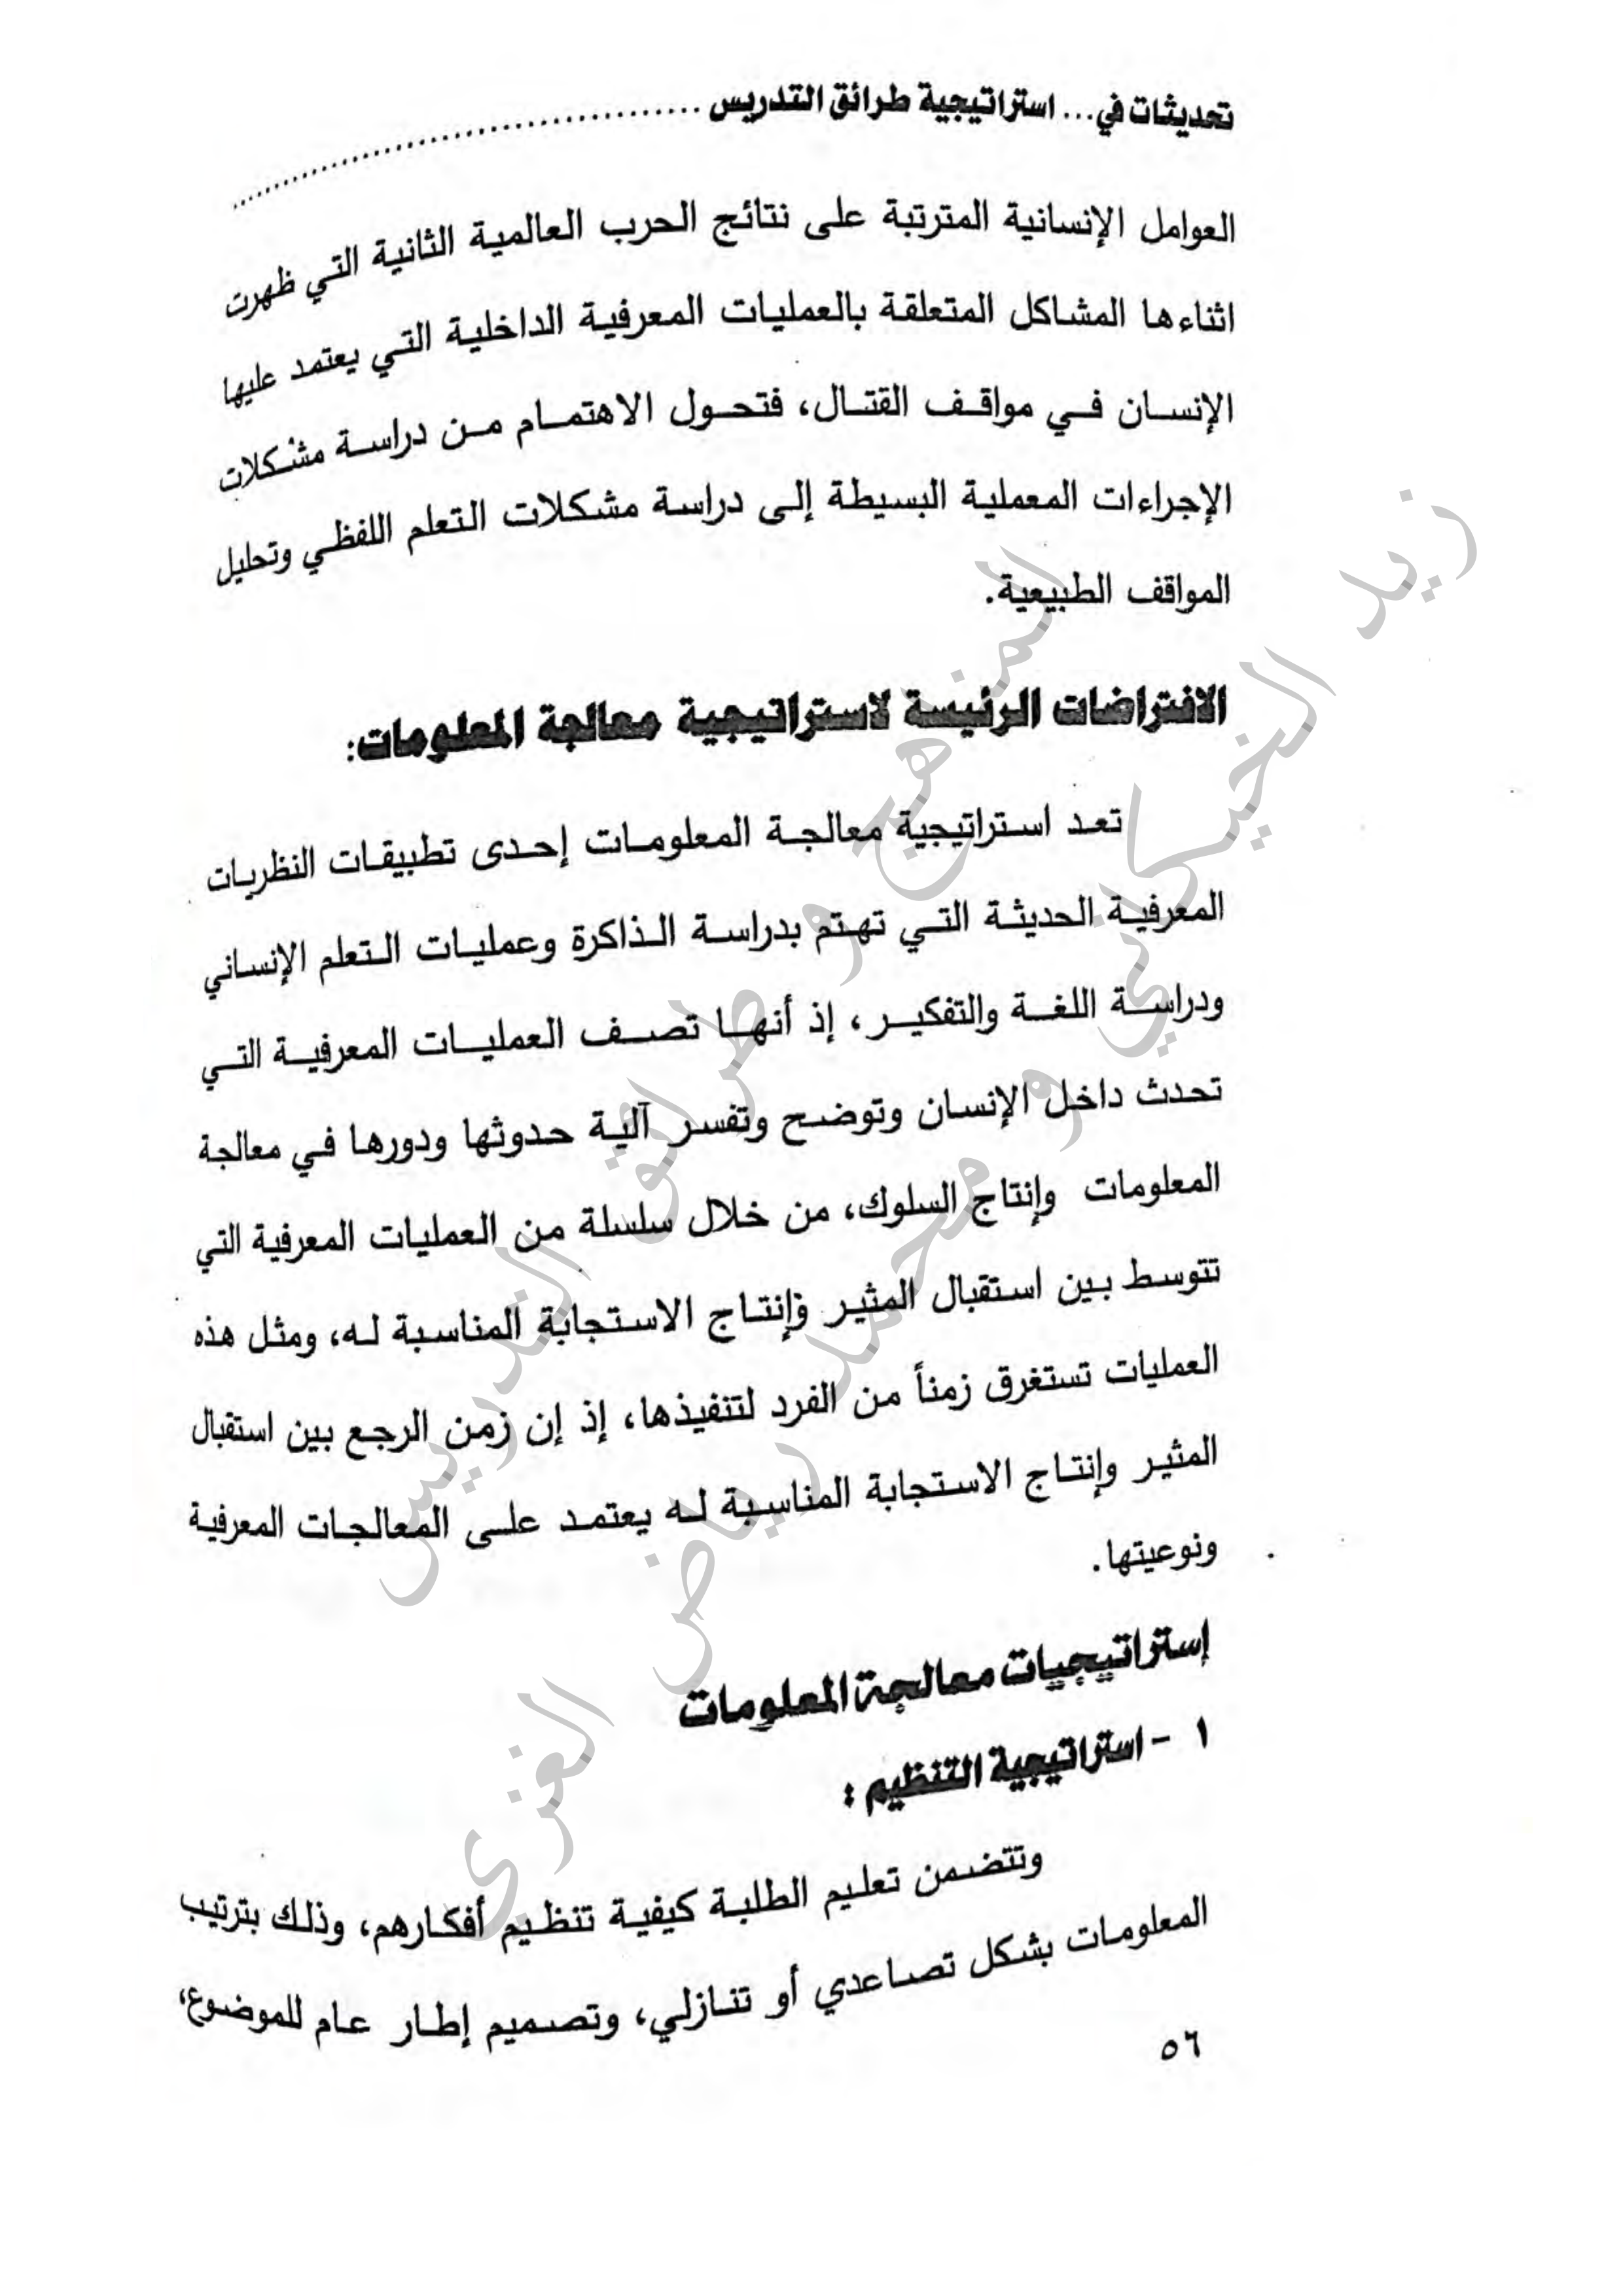 تحديثات في... استراتيجية طرائق التدريس ........................................
العوامل الإنسانية المترتبة على نتائج الحرب العالمية الثانية التي ظهرت
اثناءها المشاكل المتعلقة بالعمليات المعرفية الداخلية التي يعتمد عليها
الإنسان في مواقف القتال، فتحول الاهتمام من دراسة مشكلات
الإجراءات المعملية البسيطة إلى دراسة مشكلات التعلم اللفظي وتحليل
المواقف الطبيعية.
الافتراضات الرئيسة لاستراتيجية معالجة المعلومات:
تعد استراتيجية معالجة المعلومات إحدى تطبيقات النظريات
المعرفية الحديثة التي تهتم بدراسة الذاكرة وعمليات التعلم الإنساني
ودراسة اللغة والتفكير، إذ أنها تصف العمليات المعرفية التي
تحدث داخل الإنسان وتوضح وتفسر آلية حدوثها ودورها في معالجة
المعلومات وإنتاج السلوك، من خلال سلسلة من العمليات المعرفية التي
تتوسط بين استقبال المثير وإنتاج الاستجابة المناسبة له، ومثل هذه
العمليات تستغرق زمناً من الفرد لتنفيذها، إذ إن زمن الرجع بين استقبال
المثير وإنتاج الاستجابة المناسبة له يعتمد على المعالجات المعرفية
ونوعيتها.
إستراتيجيات معالجة المعلومات
١ - استراتيجية التنظيم :
وتتضمن تعليم الطلبة كيفية تنظيم أفكارهم، وذلك بترتيب
المعلومات بشكل تصاعدي أو تنازلي، وتصميم إطار عام للموضوع،
٥٦
المناهج و طرائق التدريس
زيد الخيكاني و محمد رياض الغزي